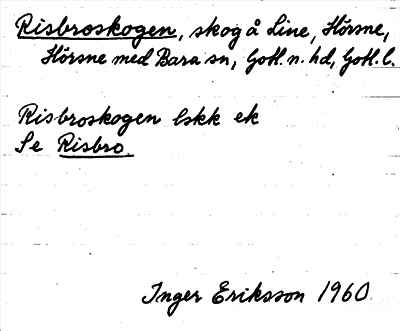 Risbroskogen, skog å Line, Hörsne,
Hörsne med Bara sn, Gotl. n. hd, Gotl. l.
Risbroskogen lskk ek
Se Risbro.
Inger Eriksson 1960